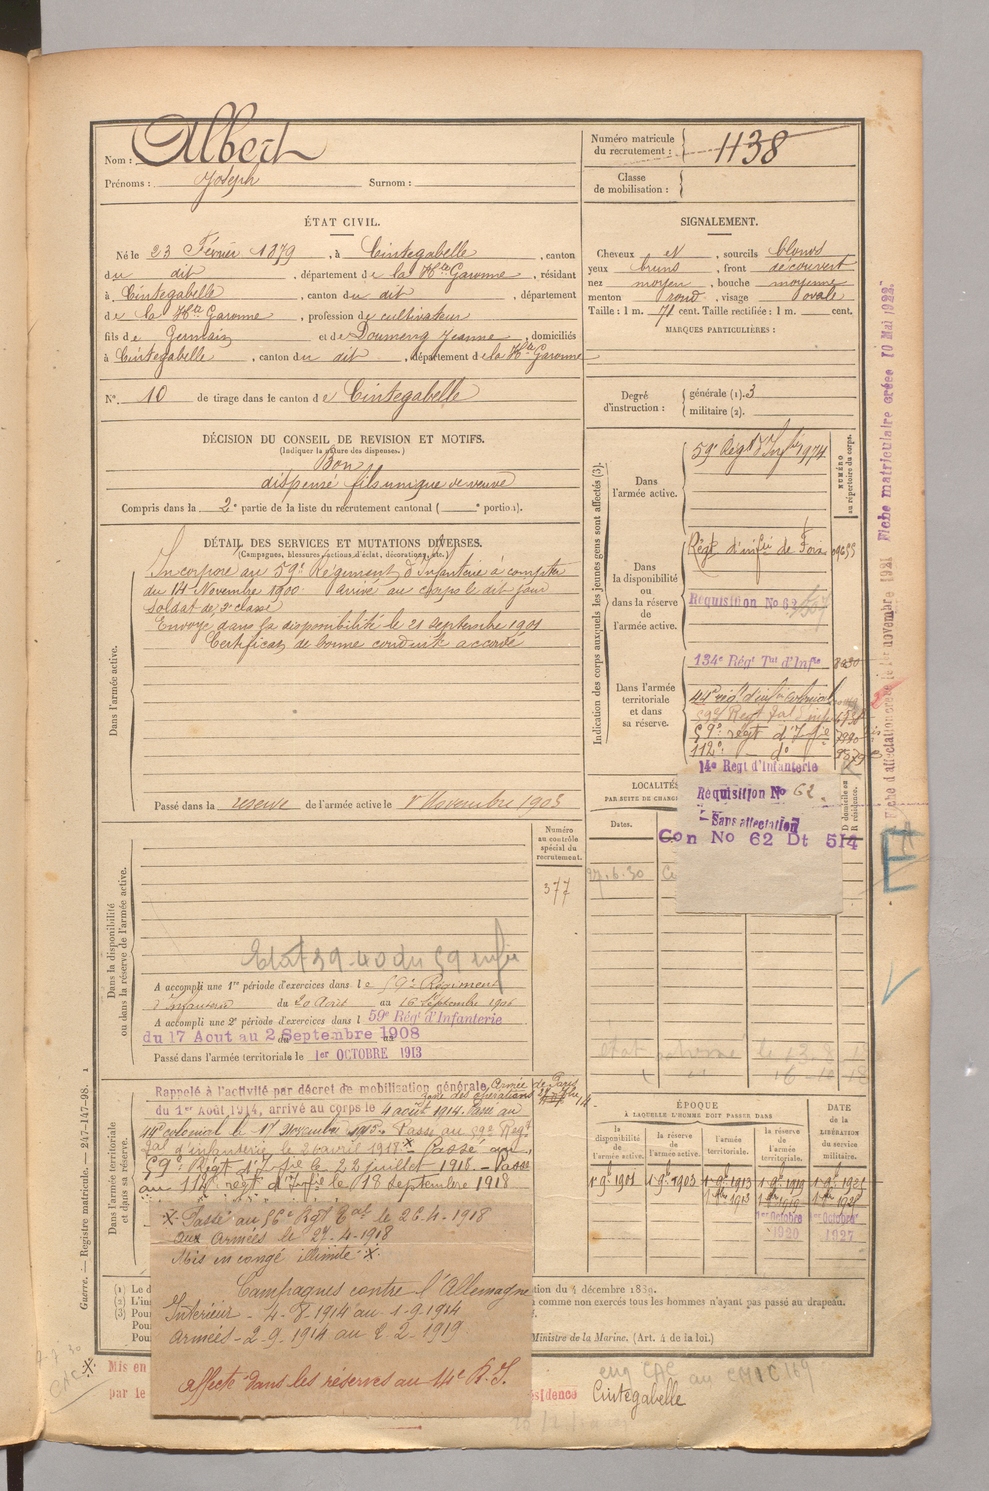 Nom : Albert
Prénoms : Joseph Surnom :
Numéro matricule
du recrutement : 1138
Classe
de mobilisation :
ÉTAT CIVIL.
Né le 23 Février 1879, à Cintegabelle, canton
du dit, département de la Hte Garonne, résidant
à Cintegabelle, canton du dit, département
de la Hte Garonne, profession de cultivateur
fils de Germain et de Doumeng Jeanne, domiciliés
à Cintegabelle, canton du dit, département de la Hte Garonne
N°. 10 de tirage dans le canton de Cintegabelle
SIGNALEMENT.
Cheveux et, sourcils blonds
yeux bruns, front découvert
nez moyen, bouche moyenne
menton rond, visage ovale
Taille : 1 m. 71 cent. Taille rectifiée : 1 m. cent.
MARQUES PARTICULIÈRES :
Degré
d'instruction :
générale (1). 3
militaire (2).
DÉCISION DU CONSEIL DE REVISION ET MOTIFS.
(Indiquer la nature des dispenses.)
Bon
dispensé fils unique de veuve
Compris dans la 2e partie de la liste du recrutement cantonal ( e portion).
DÉTAIL DES SERVICES ET MUTATIONS DIVERSES.
(Campagnes, blessures, actions d'éclat, décorations, etc.)
Dans l'armée active.
Incorporé au 59e Régiment d'Infanterie à compter
du 14 Novembre 1900. Arrivé au corps le dit jour
Soldat de 2e classe
Envoyé dans la disponibilité le 21 septembre 1901
Certificat de bonne conduite accordé
Passé dans la réserve de l'armée active le 1er Novembre 1903
Indication des corps auxquels les jeunes gens sont affectés (3).
NUMÉRO
au répertoire du corps.
Dans
l'armée active.
59e Régt d'Infie 1974
Dans
la disponibilité
ou
dans la réserve
de
l'armée active.
Régt d'infie de Foix
Réquisition No 62
Dans l'armée
territoriale
et dans
sa réserve.
134e Régt Tal d'Infie
44e régt d'infie colonial
59e Régt Tal d'inf
59e régt d'Infie
112e do
14e Regt d'Infanterie
Réquisition No 62.
Sans affectation
Con No 62 Dt 514
LOCALITÉS
PAR SUITE DE CHANG
Dates.
D domicile ou
R résidence.
27.6.30
Numéro
au contrôle
spécial du
recrutement.
377
Dans la disponibilité
ou dans la réserve de l'armée active.
Etat 39-40 du 59 infie
A accompli une 1re période d'exercices dans le 59e Régiment
d'infanterie du 20 Août au 16 Septembre 1906
A accompli une 2e période d'exercices dans l 59e Régt d'Infanterie
du 17 Aout au 2 Septembre 1908
Passé dans l'armée territoriale le 1er OCTOBRE 1913
Dans l'armée territoriale
et dans sa réserve.
Rappelé à l'activité par décret de mobilisation générale Armée de Paris
zone des opérations
du 1er Août 1914, arrivé au corps le 4 août 1914. Passé au
44e colonial le 17 Novembre 1915. Passé au 59e Régt
Tal d'infanterie le 2 avril 1918 x Passé au
59e Régt d'Infie le 22 juillet 1918 - Passé
au 112e régt d'Infie le 18 Septembre 1918
x Passé au 56e Rgt Tal le 26-4-1918
aux Armées le 27-4-1918
Mis en congé illimité x.
Campagnes contre l'Allemagne
Intérieur - 4-8-1914 au 1-9-1914
Armées - 2-9-1914 au 2-2-1919
affecté dans les réserves au 14e R.I.
ÉPOQUE
À LAQUELLE L'HOMME DOIT PASSER DANS
DATE
DE LA
LIBÉRATION
du service
militaire.
la
disponibilité
de
l'armée active.
la réserve
de
l'armée active.
l'armée
territoriale.
la réserve
de
l'armée
territoriale.
1er 9bre 1901 1er 9bre 1903 1er 9bre 1913 1er 9bre 1919 1er 9bre 1925
1er Octobre
1920
1er Octobre
1927
(1) Le d
(2) L'ins
(3) Pour
Pou
Pou
tion du 4 décembre 1889.
comme non exercés tous les hommes n'ayant pas passé au drapeau.
Ministre de la Marine. (Art. 4 de la loi.)
Mis en
par le
ésidence Cintegabelle
Guerre. — Registre matricule. — 247-147-98. 1
Fiche d'affectation créée le 1er novembre 1921 Fiche matriculaire créée 10 Mai 1922.